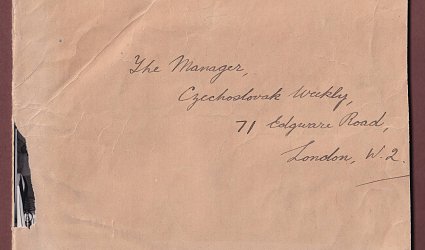 The Manager,
Czechoslovak Weekly,
71 Edgware Road,
London, W.2.